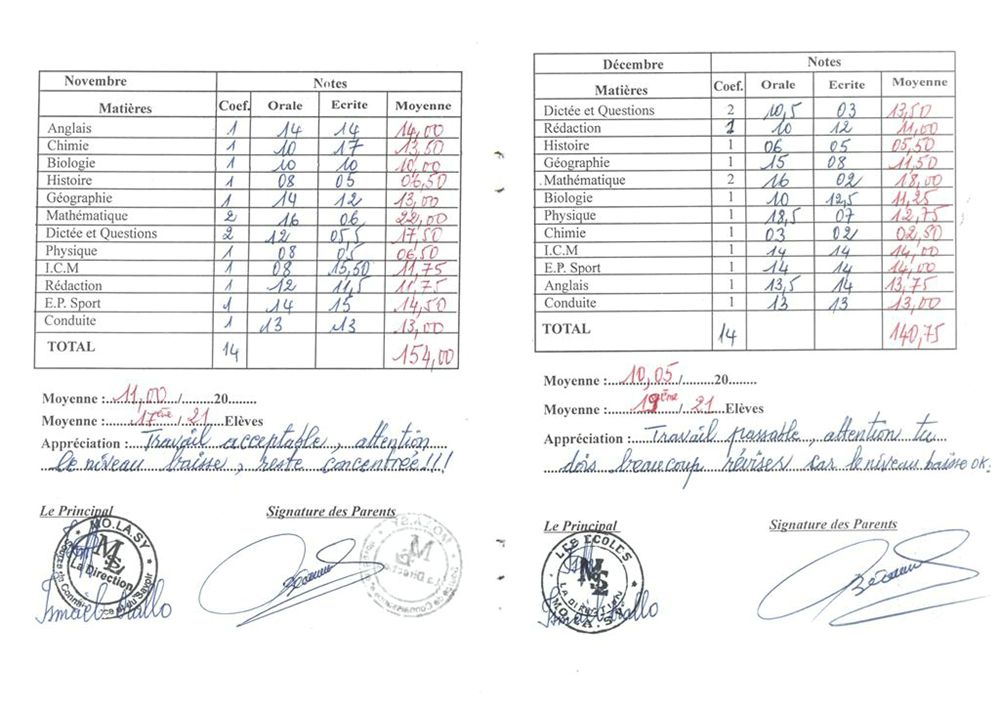 Novembre Notes
Matières Coef. Orale Ecrite Moyenne
Anglais 1 14 14 14,00
Chimie 1 10 17 13,50
Biologie 1 10 10 10,00
Histoire 1 08 05 06,50
Géographie 1 14 12 13,00
Mathématique 2 16 06 22,00
Dictée et Questions 2 12 05,5 17,50
Physique 1 08 05 06,50
I.C.M 1 08 15,50 11,75
Rédaction 1 12 11,5 11,75
E.P. Sport 1 14 15 14,50
Conduite 1 13 13 13,00
TOTAL 14 154,00
Moyenne :......11,00....../........20........
Moyenne :.......17ème./.21...Elèves
Appréciation :..Travail acceptable, attention
le niveau baisse, reste concentrée!!!
Le Principal Signature des Parents
MO.LA.SY
La Direction
Ismael Diallo
Décembre Notes
Matières Coef. Orale Ecrite Moyenne
Dictée et Questions 2 10,5 03 13,50
Rédaction 1 10 12 11,00
Histoire 1 06 05 05,50
Géographie 1 15 08 11,50
Mathématique 2 16 02 18,00
Biologie 1 10 12,5 11,25
Physique 1 18,5 07 12,75
Chimie 1 03 02 02,50
I.C.M 1 14 14 14,00
E.P. Sport 1 14 14 14,00
Anglais 1 13,5 14 13,75
Conduite 1 13 13 13,00
TOTAL 14 140,75
Moyenne :...10,05../........20........
Moyenne :......19ème./..21...Elèves
Appréciation :...Travail passable, attention tu
dois beaucoup révises car le niveau baisse OK.
Le Principal Signature des Parents
LES ECOLES
LA DIRECTION
MO.LA.SY